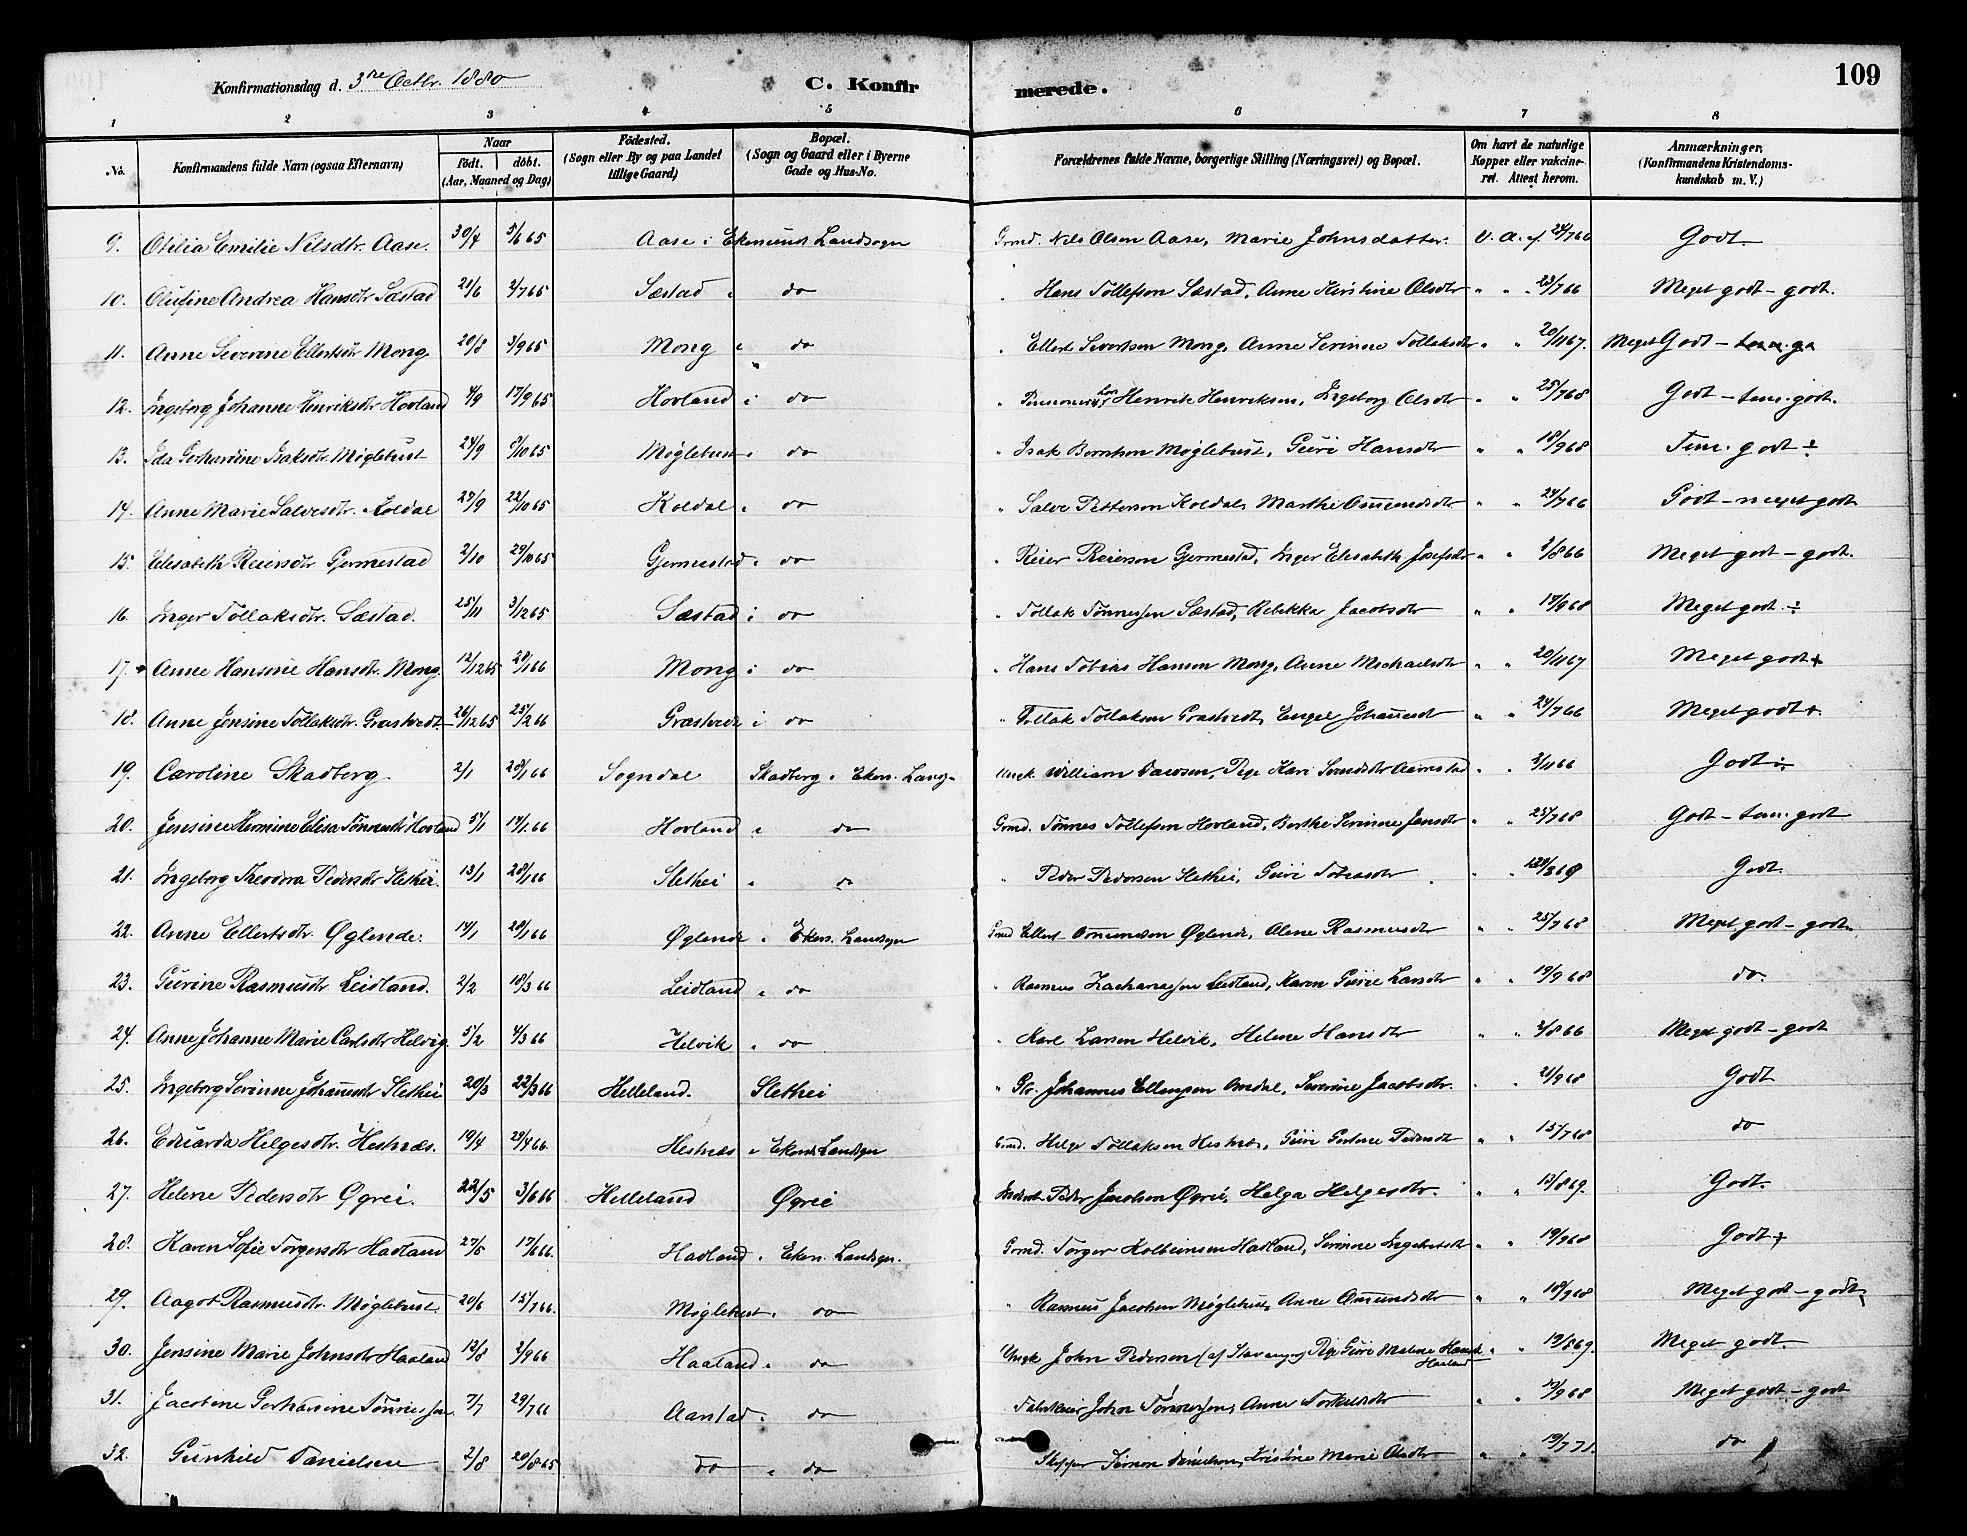 Konfirmationsdag d. 3die Octbr. 1880
C. Konfirmerede.
109
1 2 3 4 5 6 7 8
No. Konfirmandens fulde Navn (ogsaa Efternavn) Naar födt. döbt. (Aar, Maaned og Dag) Födested. (Sogn eller By og paa Landet tillige Gaard) Bopæl. (Sogn og Gaard eller i Byerne Gade og Hus-No. Forældrenes fulde Navne, borgerlige Stilling (Næringsvei) og Bopæl. Om havt de naturlige Kopper eller vakcineret. Attest herom. Anmærkninger, (Konfirmandens Kristendomskundskab m. V.)
9. Otilia Emilie Nilsdtr. Aase. 30/4 5/6 65 Aase i Ekersunds Landsogn Grmd. Nils Olsen Aase, Marie Johnsdatter. v. a. f. 24/7 66 Godt.
10. Olufine Andrea Hansdtr Sæstad 21/6 2/7 65 Sæstad " do " Hans Tollefsen Sæstad, Anne Kirstine Olsdtr " " 23/7 66 Meget godt - godt.
11. Anne Severine Ellertsdtr Mong. 20/8 3/9 65 Mong " do " Ellert Sivertsen Mong, Anne Serinne Tollaksdtr " " 20/11 67. Meget Godt -
12. Ingeborg Johanne Henriksdtr Hovland 4/9 17/9 65 Hovland i do " Henrik Henriksen, Ingeborg Olsdtr " " 25/7 68 Godt - tem. godt.
13. Ida Gerhardine Isaksdtr. Møglebust 24/9 8/10 65 Møglebust i do " Isak Berntsen Møglebust, Guri Hansdtr " " 18/9 68 Tem. godt ÷
14. Anne Marie Salvesdtr. Koldal 28/9 22/10 65 Koldal " do " Salve Pettersen Koldal, Marthe Omundsdtr " " 24/7 66 Godt - meget godt
15. Elisabeth Reiersdtr Gjermestad 2/10 29/10 65 Gjermestad " do " Reier Reiersen Gjermestad, Inger Elisabeth Josefsdtr " " 2/8 66 Meget godt - godt.
16. Inger Tollaksdtr. Sæstad. 25/11 3/12 65 Sæstad i do " Tollak Tønnessen Sæstad, Rebekka Jacobsdtr " " 17/9 68 Meget godt ÷
17. Anne Hansine Hansdtr. Mong. 12/12 65 28/1 66 Mong i do " Hans Tobias Hansen Mong, Anne Michaelsdtr " " 20/11 67 Meget godt +
18. Anne Jensine Tollaksdtr. Græstvedt 26/12 65 25/2 66 Græstvedt i do " Tollak Tollaksen Græstvedt, Engel Johannesdtr " " 24/7 66 Meget godt +.
19. Caroline Skadberg. 2/1 28/1 66 Sogndal Skadberg i Ekers. Landsgn Ungk. William, Pige Kari " " 2/11 66 Godt ÷
20. Jensine Hermine Elisa Tønnesdtr Hovland 5/1 14/1 66 Hovland " do Grmd. Tønnes Tollefsen Hovland, Berthe Serinne Jansdtr " " 25/7 68 Godt - tem. godt
21. Ingeborg Theodora Pedersdtr Slethei. 13/1 28/1 66 Slethei " do " Peder Pedersen Slethei, Guri Tobiasdtr " " /3 69 Godt.
22. Anne Ellertsdtr. Øglende. 14/1 28/1 66 Øglende " Ekers. Landsogn Grmd Ellert Omundsen Øglende, Alene Rasmusdtr " " 25/7 68 Meget godt - godt.
23. Gurine Rasmusdtr Leidland. 2/2 18/3 66 Leidland " do " Rasmus Zachariassen Leidland, Karen Gurie Larsdtr " " 19/9 68 do.
24. Anne Johanne Marie Carlsdtr Helvig. 5/2 4/3 66 Helvik " do " Karl Larsen Helvik, Helene Hansdtr " " 2/8 66 Meget godt - godt
25. Ingeborg Serinne Johannesdtr Slethei 20/3 22/3 66 Helleland. Slethei " Johannes Ellingsen Omdal, Severine Jacobsdtr. " " 21/9 68 Godt
26. Eduarda Helgesdtr. Hestnæs. 19/4 29/4 66. Hestnæs " Ekersds Landsgn Grmd. Helge Tollaksen Hestnæs, Guri Gurine Pedersdtr " " 15/7 68 do
27. Helene Pedersdtr Øgrei. 22/5 3/6 66 Helleland Øgrei Inderst. Peder Jacobsen Øgrei, Helga Helgesdtr. " " 13/8 69. Godt.
28. Karen Sofie Torgersdtr Hadland 27/5 17/6 66. Hadland " Ekers. Landsgn. Grmd. Torger Kolbeinsen Hadland, Serinne Ingebretsdtr " " 19/9 68 Godt +
29. Aagot Rasmusdtr. Møglebust. 20/6 15/7 66. Møglebust " do " Rasmus Jacobsen Møglebust, Anne Omundsdtr " " 18/9 68 Meget godt - godt
30. Jensine Marie Johnsdtr Haaland 12/8 2/9 66 Haaland " do Ungk John Pedersen (af Stavanger) Pige Guri Malene Hansdtr Haaland " " 19/8 69. Meget godt.
31. Jacobine Gerhardine Tønnessen. 7/7 29/7 66 Aanstad " do John Tønnessen, Anne Torkelsdtr " " 17/9 68 Meget godt - godt
32. Gunhild Danielsen 2/8 20/8 65 do " do Skipper Simon Danielsen, Kristine Marie Olsdtr " " 19/7 71. do